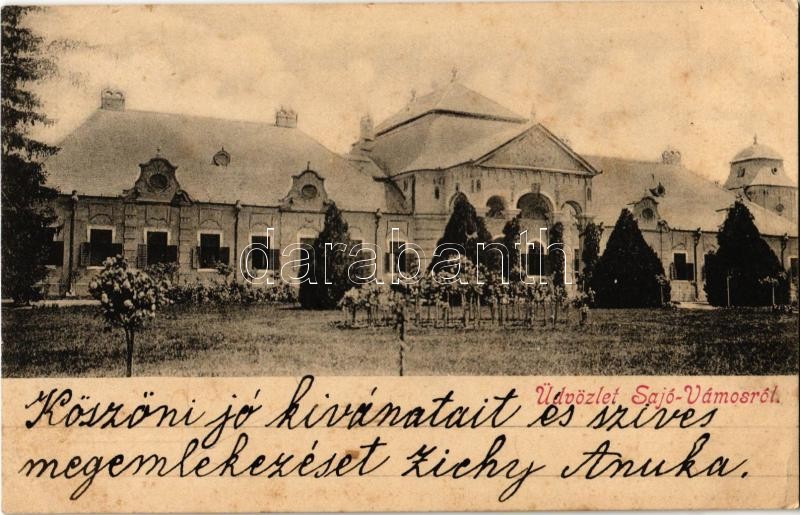 darabanth
Üdvözlet Sajó-Vámosról.
Köszöni jó kivánatait és szives
megemlekezéset Zichy Anuka.